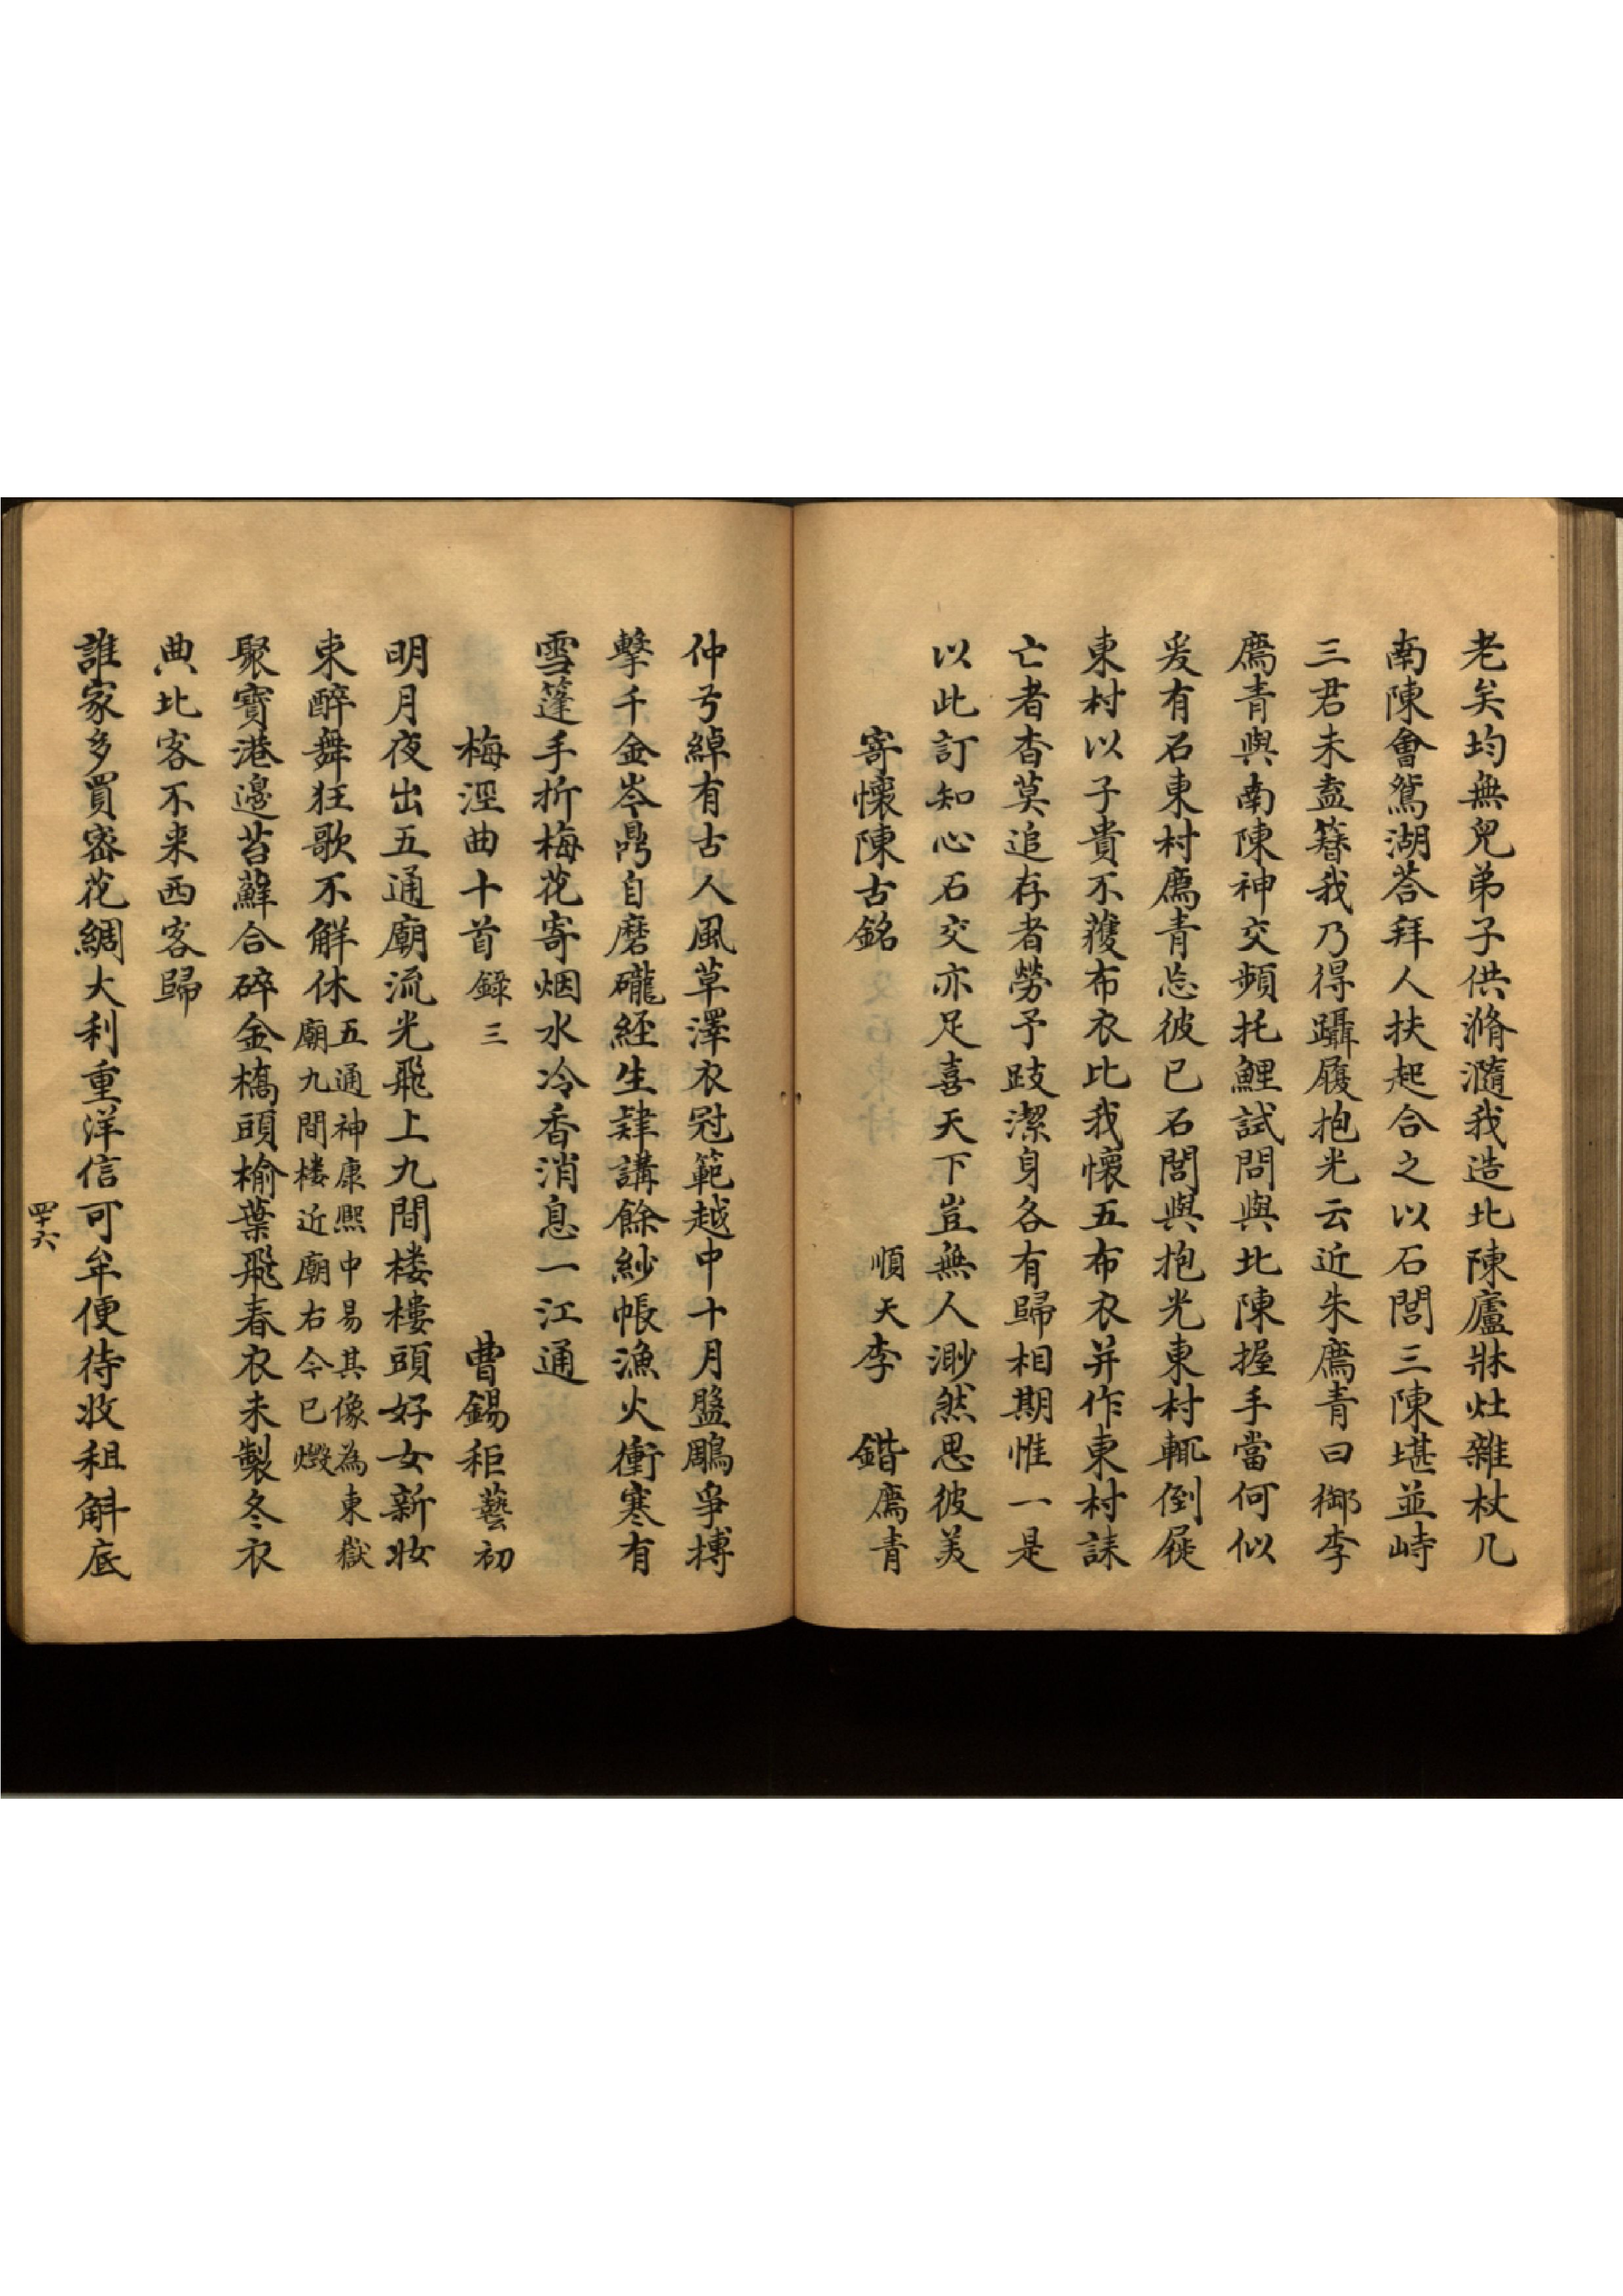 老矣均無兒弟子供滫瀡我造北陳廬牀灶雜杖几
南陳會鴛湖荅拜人扶起合之以石閭三陳堪並峙
三君未盍簪我乃得躡履抱光云近朱廌青曰鄉李
廌青與南陳神交頻托鯉試問與北陳握手當何似
爰有石東村廌青忘彼已石閭與抱光東村輒倒屣
東村以子貴不蕧布衣比我懷五布衣并作東村誄
亡者杳莫追存者勞予跂潔身各有歸相期惟一是
以此訂知心石交亦足喜天下豈無人渺然思彼美
寄懷陳古銘 順天李 鍇廌青
仲弓綽有古人風草澤衣冠範越中十月盤鵰爭搏
擊千金岑鼎自磨礲經生肄講餘紗帳漁火衝寒有
雪蓬手折梅花寄烟水冷香消息一江通
梅涇曲十首錄三 曹錫秬藝初
明月夜出五通廟流光飛上九間楼樓頭好女新妝
束醉舞狂歌不解休五通神康熙中易其像為東嶽
廟九間楼近廟右今已燬
聚寶港邊苔蘚合碎金橋頭榆葉飛春衣未製冬衣
典北客不来西客歸
誰家多買密花綢大利重洋信可牟便待收租斛底
四十六